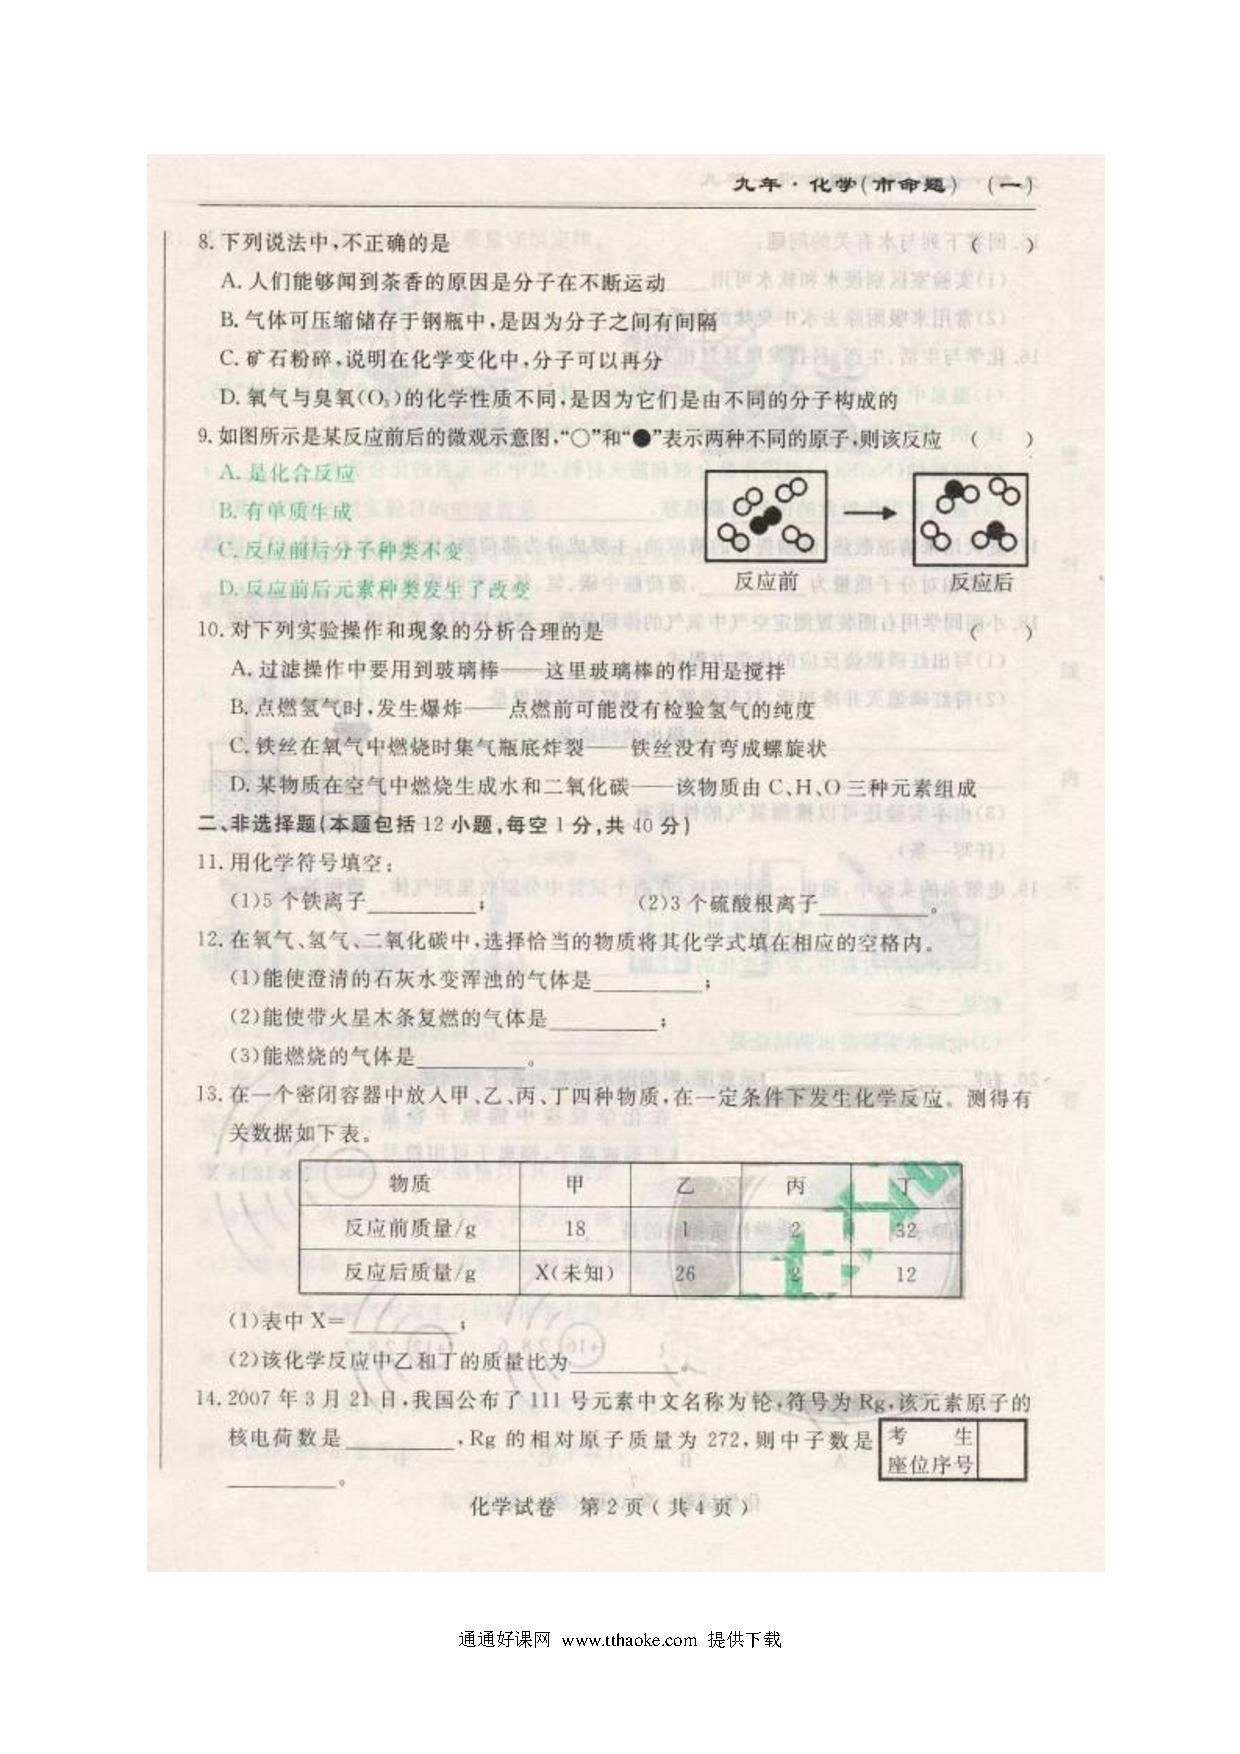 九年·化学(市命题) (一)
8.下列说法中,不正确的是 ( )
A.人们能够闻到茶香的原因是分子在不断运动
B.气体可压缩储存于钢瓶中,是因为分子之间有间隔
C.矿石粉碎,说明在化学变化中,分子可以再分
D.氧气与臭氧(O₃)的化学性质不同,是因为它们是由不同的分子构成的
9.如图所示是某反应前后的微观示意图,“○”和“●”表示两种不同的原子,则该反应 ( )
A.是化合反应
B.有单质生成
C.反应前后分子种类不变
D.反应前后元素种类发生了改变
反应前 反应后
10.对下列实验操作和现象的分析合理的是 ( )
A.过滤操作中要用到玻璃棒——这里玻璃棒的作用是搅拌
B.点燃氢气时,发生爆炸——点燃前可能没有检验氢气的纯度
C.铁丝在氧气中燃烧时集气瓶底炸裂——铁丝没有弯成螺旋状
D.某物质在空气中燃烧生成水和二氧化碳——该物质由C、H、O三种元素组成
二、非选择题(本题包括12小题,每空1分,共40分)
11.用化学符号填空:
(1)5个铁离子________; (2)3个硫酸根离子________。
12.在氧气、氢气、二氧化碳中,选择恰当的物质将其化学式填在相应的空格内。
(1)能使澄清的石灰水变浑浊的气体是________;
(2)能使带火星木条复燃的气体是________;
(3)能燃烧的气体是________。
13.在一个密闭容器中放入甲、乙、丙、丁四种物质,在一定条件下发生化学反应。测得有
关数据如下表。
物质 甲 乙 丙 丁
反应前质量/g 18 1 2 32
反应后质量/g X(未知) 26 2 12
(1)表中X=________;
(2)该化学反应中乙和丁的质量比为________。
14.2007年3月21日,我国公布了111号元素中文名称为轮,符号为Rg,该元素原子的
核电荷数是________,Rg的相对原子质量为272,则中子数是
________。
考 生
座位序号
化学试卷 第2页(共4页)
通通好课网 www.tthaoke.com 提供下载